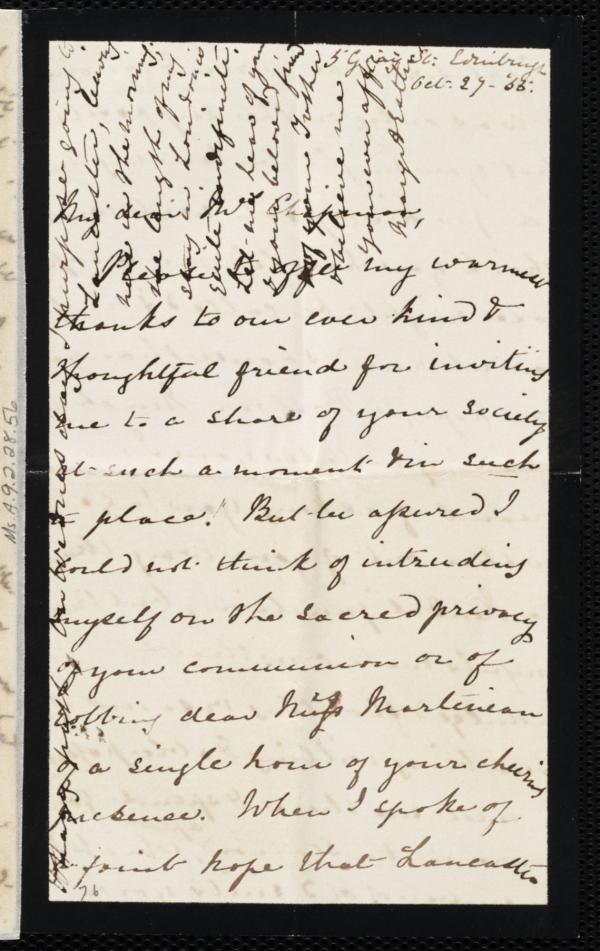 5 Gray St: Edinburgh
Oct- 27 - 55.
My dear Mrs Chapman,
Please to offer my warmest
thanks to our ever kind &
thoughtful friend for inviting
me to a share of your society
at such a moment & in such
a place! But be assured I
could not think of intruding
myself on the sacred privacy
of your communion or of
robbing dear Miss Martineau
of a single hour of your cheering
presence. When I spoke of
a faint hope that Lancaster
going to
Lancaster,
here in the morning,
the length of my
stay in London is
quite indefinite.
Let me hear of you
& your beloved
& believe me
Your ever aff
Mary A Estlin
Ms.A.9.2.28.56
76